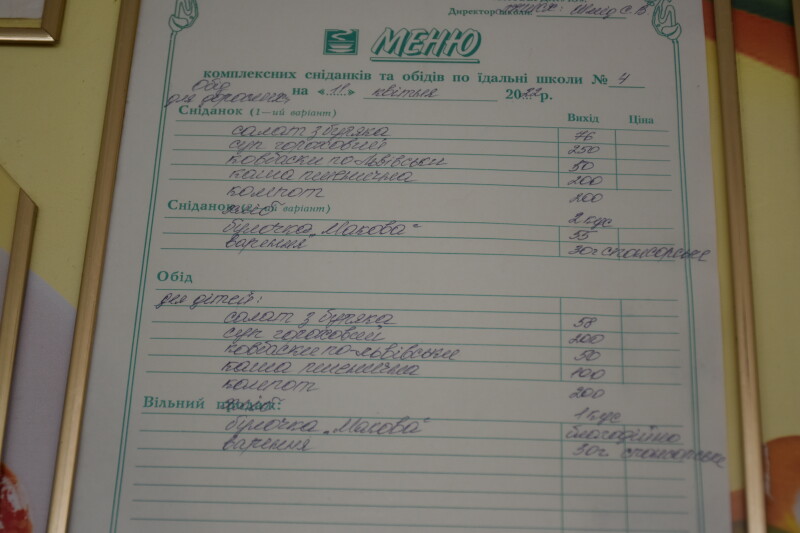 Директор школи
МЕНЮ
комплексних сніданків та обідів по їдальні школи № 4
Обід
для дорослих
на «11» квітня 2022р.
Сніданок (1—ий варіант) Вихід Ціна
салат з буряка 76
суп гороховий 250
ковбаски по-львівськи 50
каша пшенична 200
компот 200
Сніданок (2-ий варіант)
хліб 2 кус
булочка „Макова“ 55
варення 30г спонсорське
Обід
для дітей:
салат з буряка 58
суп гороховий 200
ковбаски по-львівськи 50
каша пшенична 100
компот 200
Вільний продаж:
хліб 1 кус
булочка „Макова“ благодійно
варення 30г спонсорське